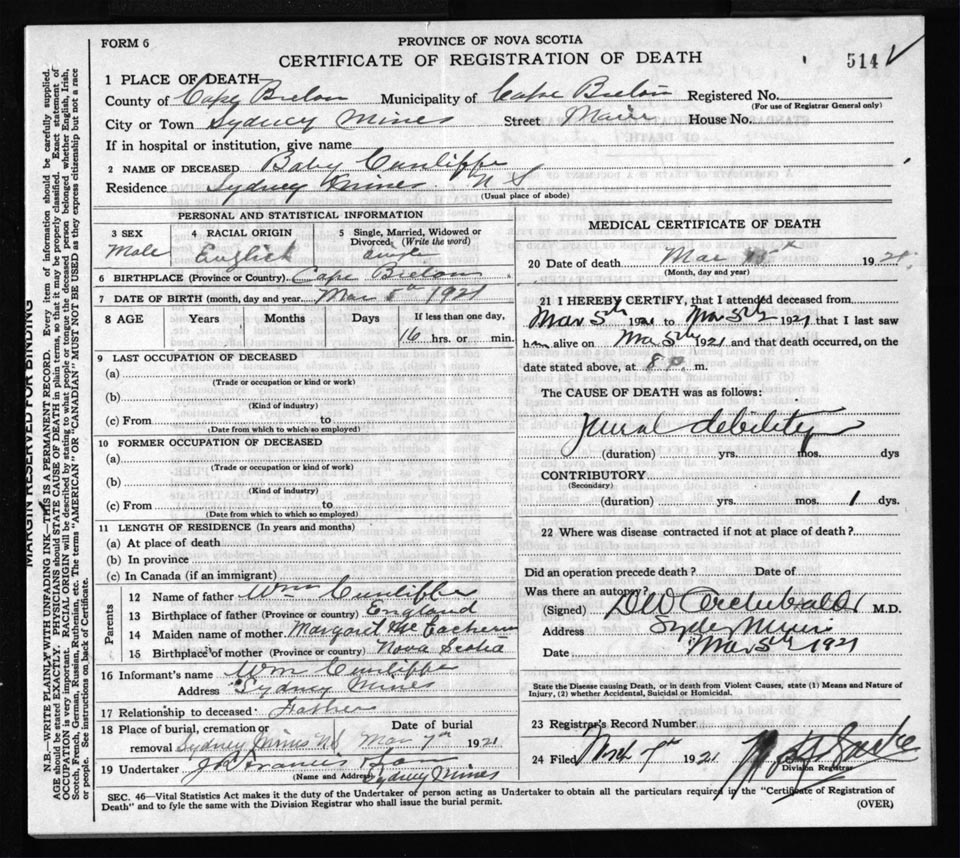 FORM 6
PROVINCE OF NOVA SCOTIA
CERTIFICATE OF REGISTRATION OF DEATH
514
1 PLACE OF DEATH—
County of Cape Breton Municipality of Cape Breton Registered No.
(For use of Registrar General only)
City or Town Sydney Mines Street Main House No.
If in hospital or institution, give name
2 NAME OF DECEASED Baby Cunliffe
Residence Sydney Mines N S
(Usual place of abode)
PERSONAL AND STATISTICAL INFORMATION
3 SEX 4 RACIAL ORIGIN 5 Single, Married, Widowed or Divorced (Write the word)
Male English Single
6 BIRTHPLACE (Province or Country) Cape Breton
7 DATE OF BIRTH (month, day and year) Mar 5th 1921
8 AGE Years Months Days If less than one day,
16 hrs. or min.
9 LAST OCCUPATION OF DECEASED
(a)
(Trade or occupation or kind or work)
(b)
(Kind of industry)
(c) From to
(Date from which to which so employed)
10 FORMER OCCUPATION OF DECEASED
(a)
(Trade or occupation or kind of work)
(b)
(Kind of industry)
(c) From to
(Date from which to which so employed)
11 LENGTH OF RESIDENCE (In years and months)
(a) At place of death
(b) In province
(c) In Canada (if an immigrant)
Parents
12 Name of father Wm Cunliffe
13 Birthplace of father (Province or country) England
14 Maiden name of mother Margaret McEachern
15 Birthplace of mother (Province or country) Nova Scotia
16 Informant's name Wm Cunliffe
Address Sydney Mines
17 Relationship to deceased Father
18 Place of burial, cremation or removal Date of burial
Sydney Mines NS Mar 7th 1921
19 Undertaker Francis
(Name and Address) Sydney Mines
MEDICAL CERTIFICATE OF DEATH
20 Date of death Mar 192
(Month, day and year)
21 I HEREBY CERTIFY, that I attended deceased from
Mar 5th 1921 to Mar 5th 1921 that I last saw
him alive on Mar 5th 1921 and that death occurred, on the
date stated above, at 8 p. m.
The CAUSE OF DEATH was as follows:
debility
(duration) yrs. mos. dys
CONTRIBUTORY
(Secondary)
(duration) yrs. mos. 1 dys.
22 Where was disease contracted if not at place of death?
Did an operation precede death? Date of
Was there an autopsy?
(Signed) DW Archibald M.D.
Address Sydney Mines
Date Mar 5th 1921
State the Disease causing Death, or in death from Violent Causes, state (1) Means and Nature of
Injury, (2) whether Accidental, Suicidal or Homicidal.
23 Registrar's Record Number
24 Filed Mch 7th 1921
Division Registrar
SEC. 46—Vital Statistics Act makes it the duty of the Undertaker or person acting as Undertaker to obtain all the particulars required in the "Certificate of Registration of
Death" and to fyle the same with the Division Registrar who shall issue the burial permit.
(OVER)
MARGIN RESERVED FOR BINDING
N.B.—WRITE PLAINLY WITH UNFADING INK—THIS IS A PERMANENT RECORD. Every item of information should be carefully supplied.
AGE should be stated EXACTLY. PHYSICIANS should STATE CAUSE OF DEATH in plain terms, so that it may be properly classified. Exact statement of
OCCUPATION is very important. RACIAL ORIGIN will be described by stating to what people or tongue the deceased person belonged whether English, Irish,
Scotch, French, German, Russian, Ruthenian, etc. The terms "AMERICAN" OR "CANADIAN" MUST NOT BE USED as they express citizenship but not a race
or people. See instructions on back of Certificate.